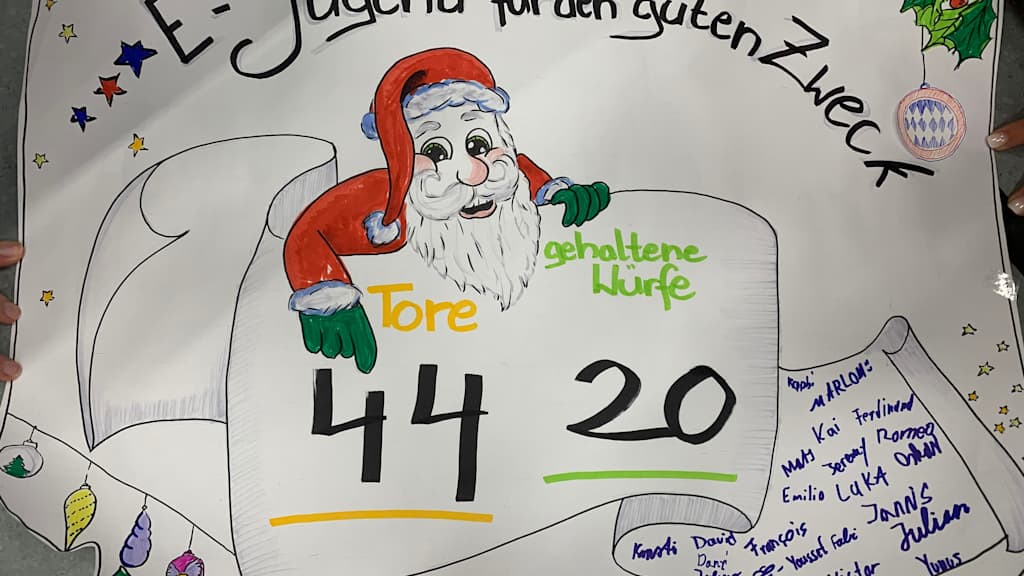 E-Jugend für den guten Zweck
gehaltene
Würfe
Tore
44 20
MARLON
Kai Ferdinand
Mats Jeremy Romeo
Emilio LUKA
JANNIS
Konsti David François Julian
Youssef
Yunus